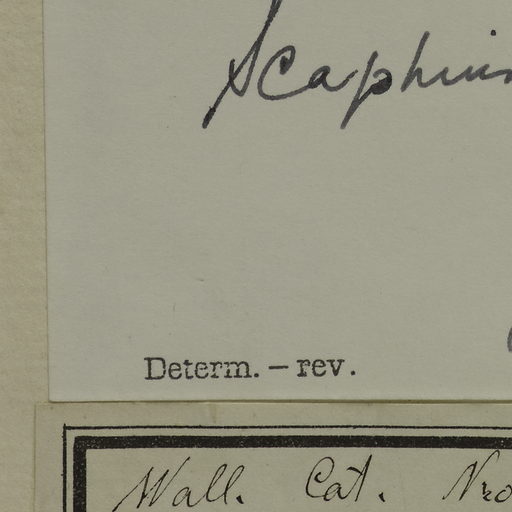 Scaphium
Determ. — rev.
Wall. Cat. Nro